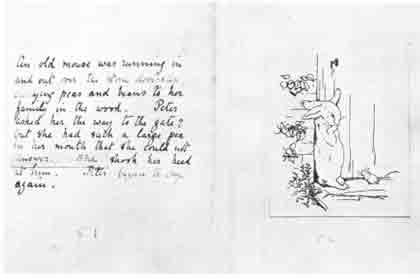 An old mouse was running in
and out over the stone door-step
ying peas and beans to her
family in the wood. Peter
asked her the way to the gate?
but she had such a large pea
in her mouth that she could not
answer. She shook her head
at him. Peter began to cry
again.